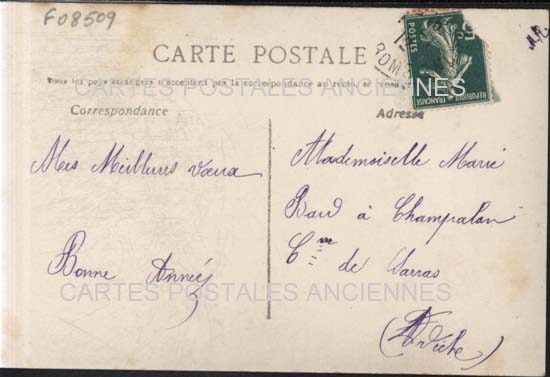 F08509
CARTE POSTALE
Tous les pays étrangers n'acceptent pas la correspondance au recto, se rens
CARTES POSTALES ANCIENNES
Correspondance
Adresse
POSTES
5c
REPUBLIQUE FRANÇAISE
ROM
Mes Meilleurs vœux
Bonne Année
Mademoiselle Marie
à Champalon
Cne de Sarras
(Ardèche)
CARTES POSTALES ANCIENNES